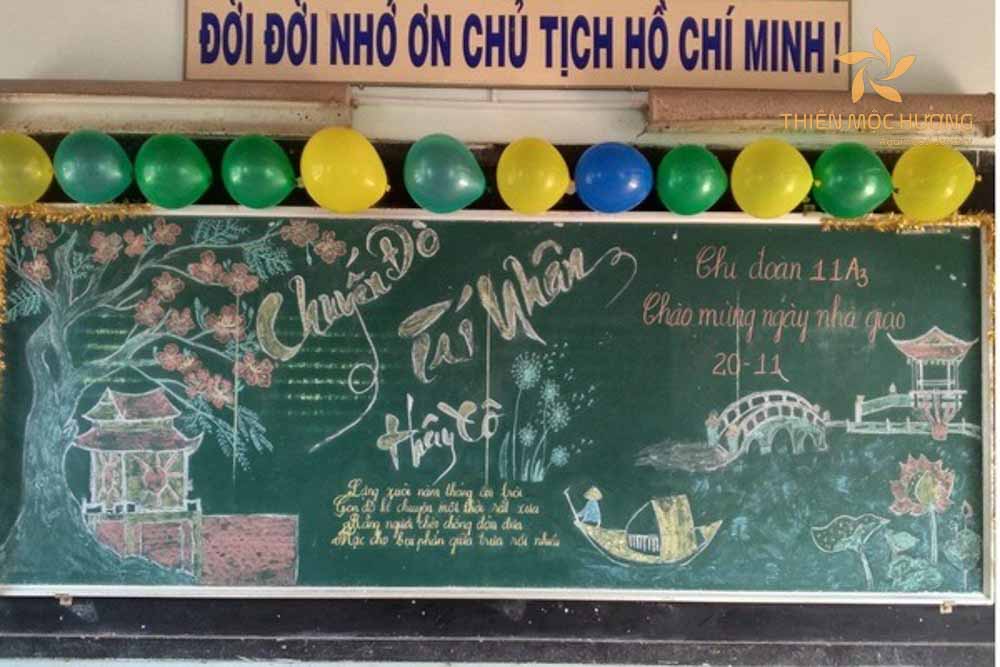 ĐỜI ĐỜI NHỚ ƠN CHỦ TỊCH HỒ CHÍ MINH!
THIÊN MỘC HƯƠNG
Chuyến Đò
Tri Nhân
Thầy Cô
Chi đoàn 11A3
Chào mừng ngày nhà giáo
20-11
Lặng xuôi năm tháng êm trôi
Con đò kể chuyện một thời rất xưa
Rằng người chèo chống đón đưa
Mặc cho bụi phấn giữa trưa rơi nhiều